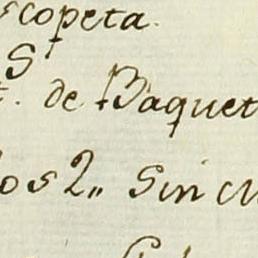 scopeta.
S
t. de Baquet
os 2,, Sin cu